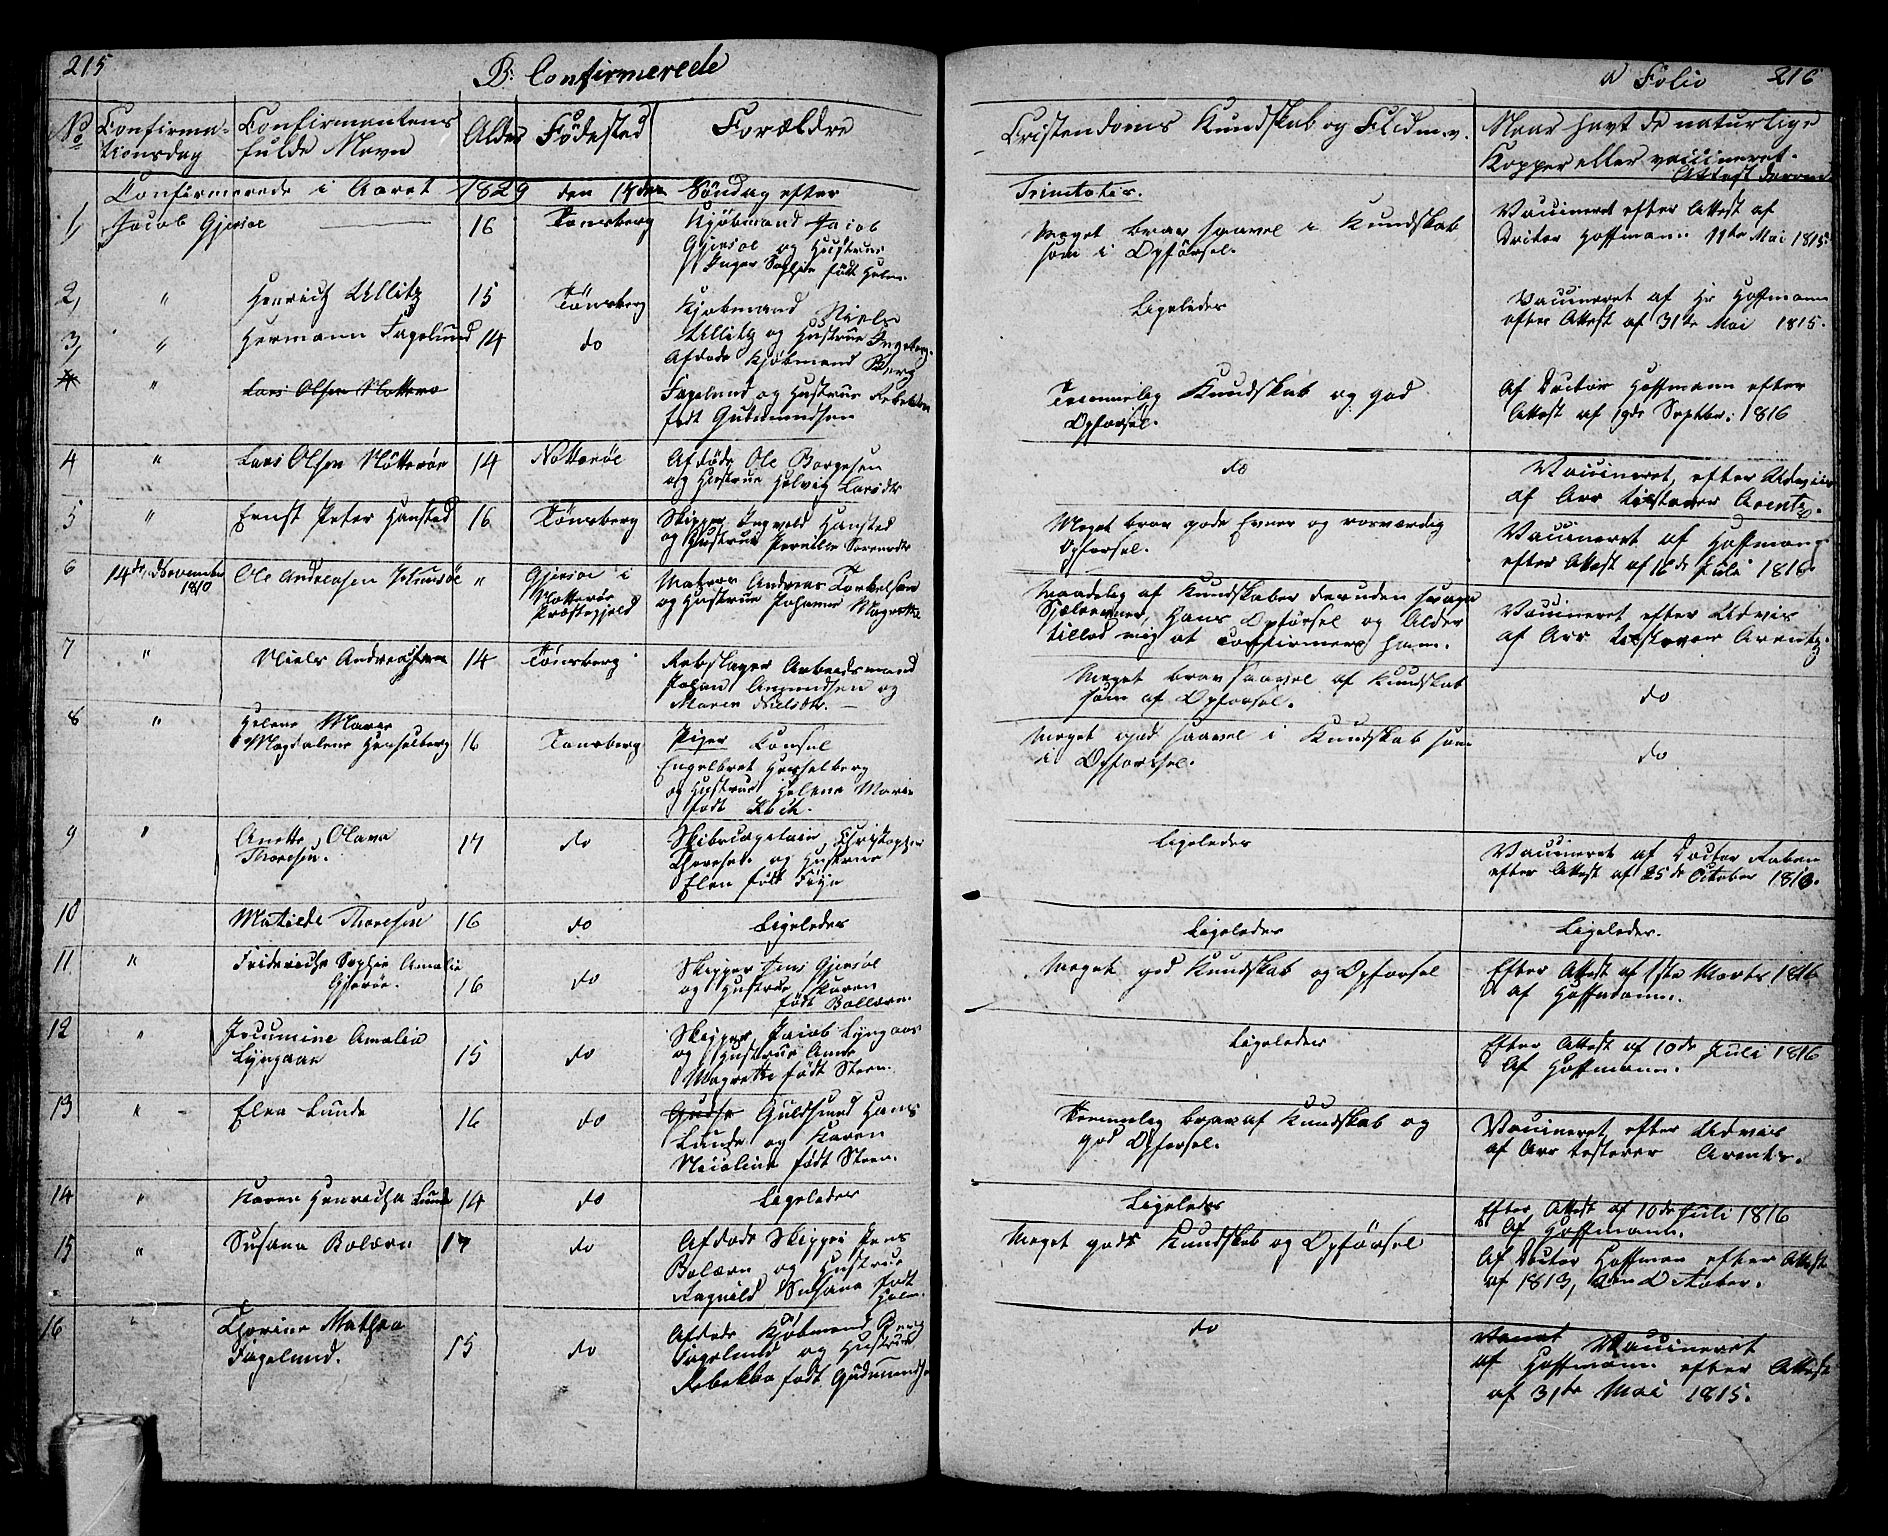 215
B: Confirmerede
No
Confirma-
tionsdag
Confirmantens
fulde Navn
Alder
Fødested
Forældre
Confirmerede i Aaret 1829 den 14de Søndag efter
1, Jacob Gjersøe 16 Tønsberg Kjøbmand Jacob
Gjersøe og Hustrue
Inger Sophie født Holm.
2, " Henrich Ullitz 15 Tønsberg Kjøbmand Niels
Ullitz og Hustrue Ingeborg.
3, " Hermann Fagelund 14 do Afdøde Kjøbmand Berg
Fagelund og Hustrue Rebekka
født Gudmundsen
4 " Lars Olsen Nøtterø
4 " Lars Olsen Nøtterøe 14 Nøtterøe Afdøde Ole Borgesen
og Hustrue Helvig Larsdtr
5 " Ernst Peter Hansted 16 Tønsberg Skipper Ingvold Hansted
og Hustrue Pernille Sørensdtr
6 14de November
1810 Ole Andreasen " Gjersøe i
Nøtterøe
Præstegjeld Matros Andreas Torkelsen
og Hustrue Johanne Magrethe
7 " Niels Andreas 14 Tønsberg Rebslager Arbeidsmand
Johan Amundsen og
Maren Nielsdtr. —
8 " Helene Marie
Magdalene Hesselberg 16 Tønsberg Piger Consul
Engelbret Hesselberg
og Hustrue Helene Marie
født
9 " Anette Olava
Thoresen. 17 do Skibscapitain Christopher
Thoresen og Hustrue
Elen født
10 Matilde Thoresen 16 do Ligeledes
11 " Fridericha Sophie Amalie
Gjersøe. 16 do Skipper Jens Gjersøe
og Hustrue Karen
født Bollærn.
12 " Amalia
Lyngaas 15 do Skipper Jacob Lyngaas
og Hustrue Anne
Magrethe født Steen.
13 " Elen Lunde 16 do Guldsmed Hans
Lunde og Karen
Nicoline født Steen.
14 " Karen Henricha Lunde 14 do Ligeledes
15 " Susana Bolærn 17 do Afdøde Skipper Jens
Bolærn og Hustrue
Ragnild Susana født
Holm.
16 " Thorine Mathea
Fagelund. 15 do Afdøde Kjøbmand Berg
Fagelund og Hustrue
Rebekka født Gudmunds
Folio 216
Cristendoms Kundskab og Flid m. v.
Naar havt de naturlige
Kopper eller vaccineret.
Attest derom
Trinitates.
Meget brav saavel i Kundskab
som i Opførsel.
Vaccineret efter Attest af
Docter Hoffmann 11te Mai 1815.
Ligeledes
Vaccineret af Hr Hoffmann
efter Attest af 31te Mai 1815.
Temmelig Kundskab og god
Opførsel.
Af Doctor Hoffmann efter
Attest af 19de Septbr: 1816
do
Vaccineret, efter Udviis
af Arentz.
Meget brav gode Evner og
Opførsel.
Vaccineret af Hoffmann
efter Attest af 16de Juli 1816.
Maadelig af Kundskaber desuden svage
Sjælevner, hans Opførsel og Alder
tillod mig at confirmere ham.
Vaccineret efter Udviis
af Arentz.
Meget brav saavel af Kundskab
som af Opførsel.
do
Meget god saavel i Kundskab som
i Opførsel.
do
Ligeledes
Vaccineret af Doctor Raben
efter Attest af 25de October 1813.
Ligeledes
Ligeledes.
Meget god Kundskab og Opførsel
Efter Attest af 1ste Marts 1816
af Hoffmann.
Ligeledes
Efter Attest af 10de Juli 1816
Af Hoffmann.
Temmelig brav af Kundskab og
god Opførsel.
Vaccineret, efter Udviis
af Arentz.
Ligeledes
Efter Attest af 10de Juli 1816
Af Hoffmann.
Meget gode Kundskab og Opførsel
Af Doctor Hoffman efter Attest
af 1813, den October.
do
Vaccineret
af Hoffmann efter Attest
af 31te Mai 1815.